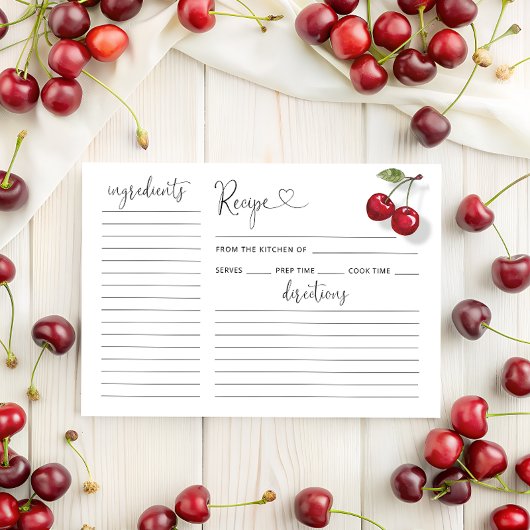 ingredients
Recipe
FROM THE KITCHEN OF
SERVES PREP TIME COOK TIME
directions